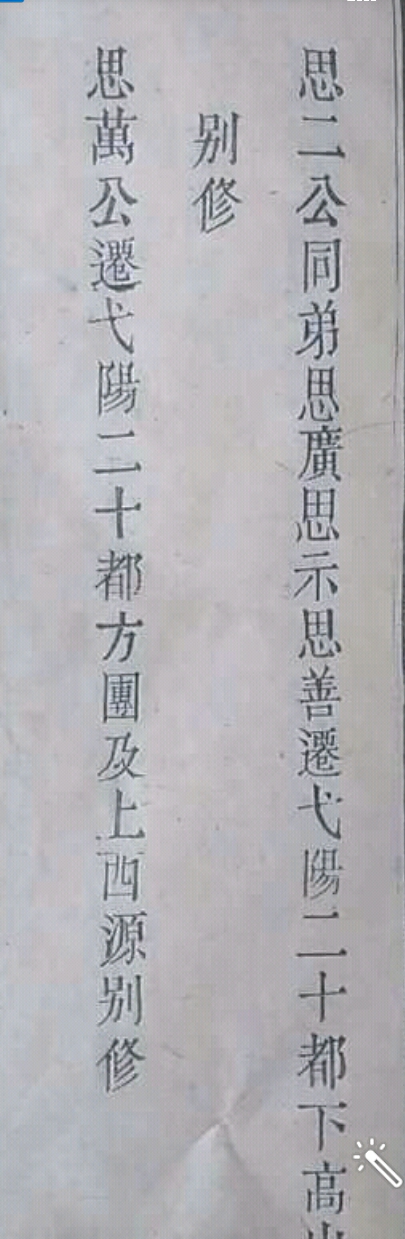 思二公同弟思廣思示思善遷弋陽二十都下高
别修
思萬公遷弋陽二十都方團及上西源别修